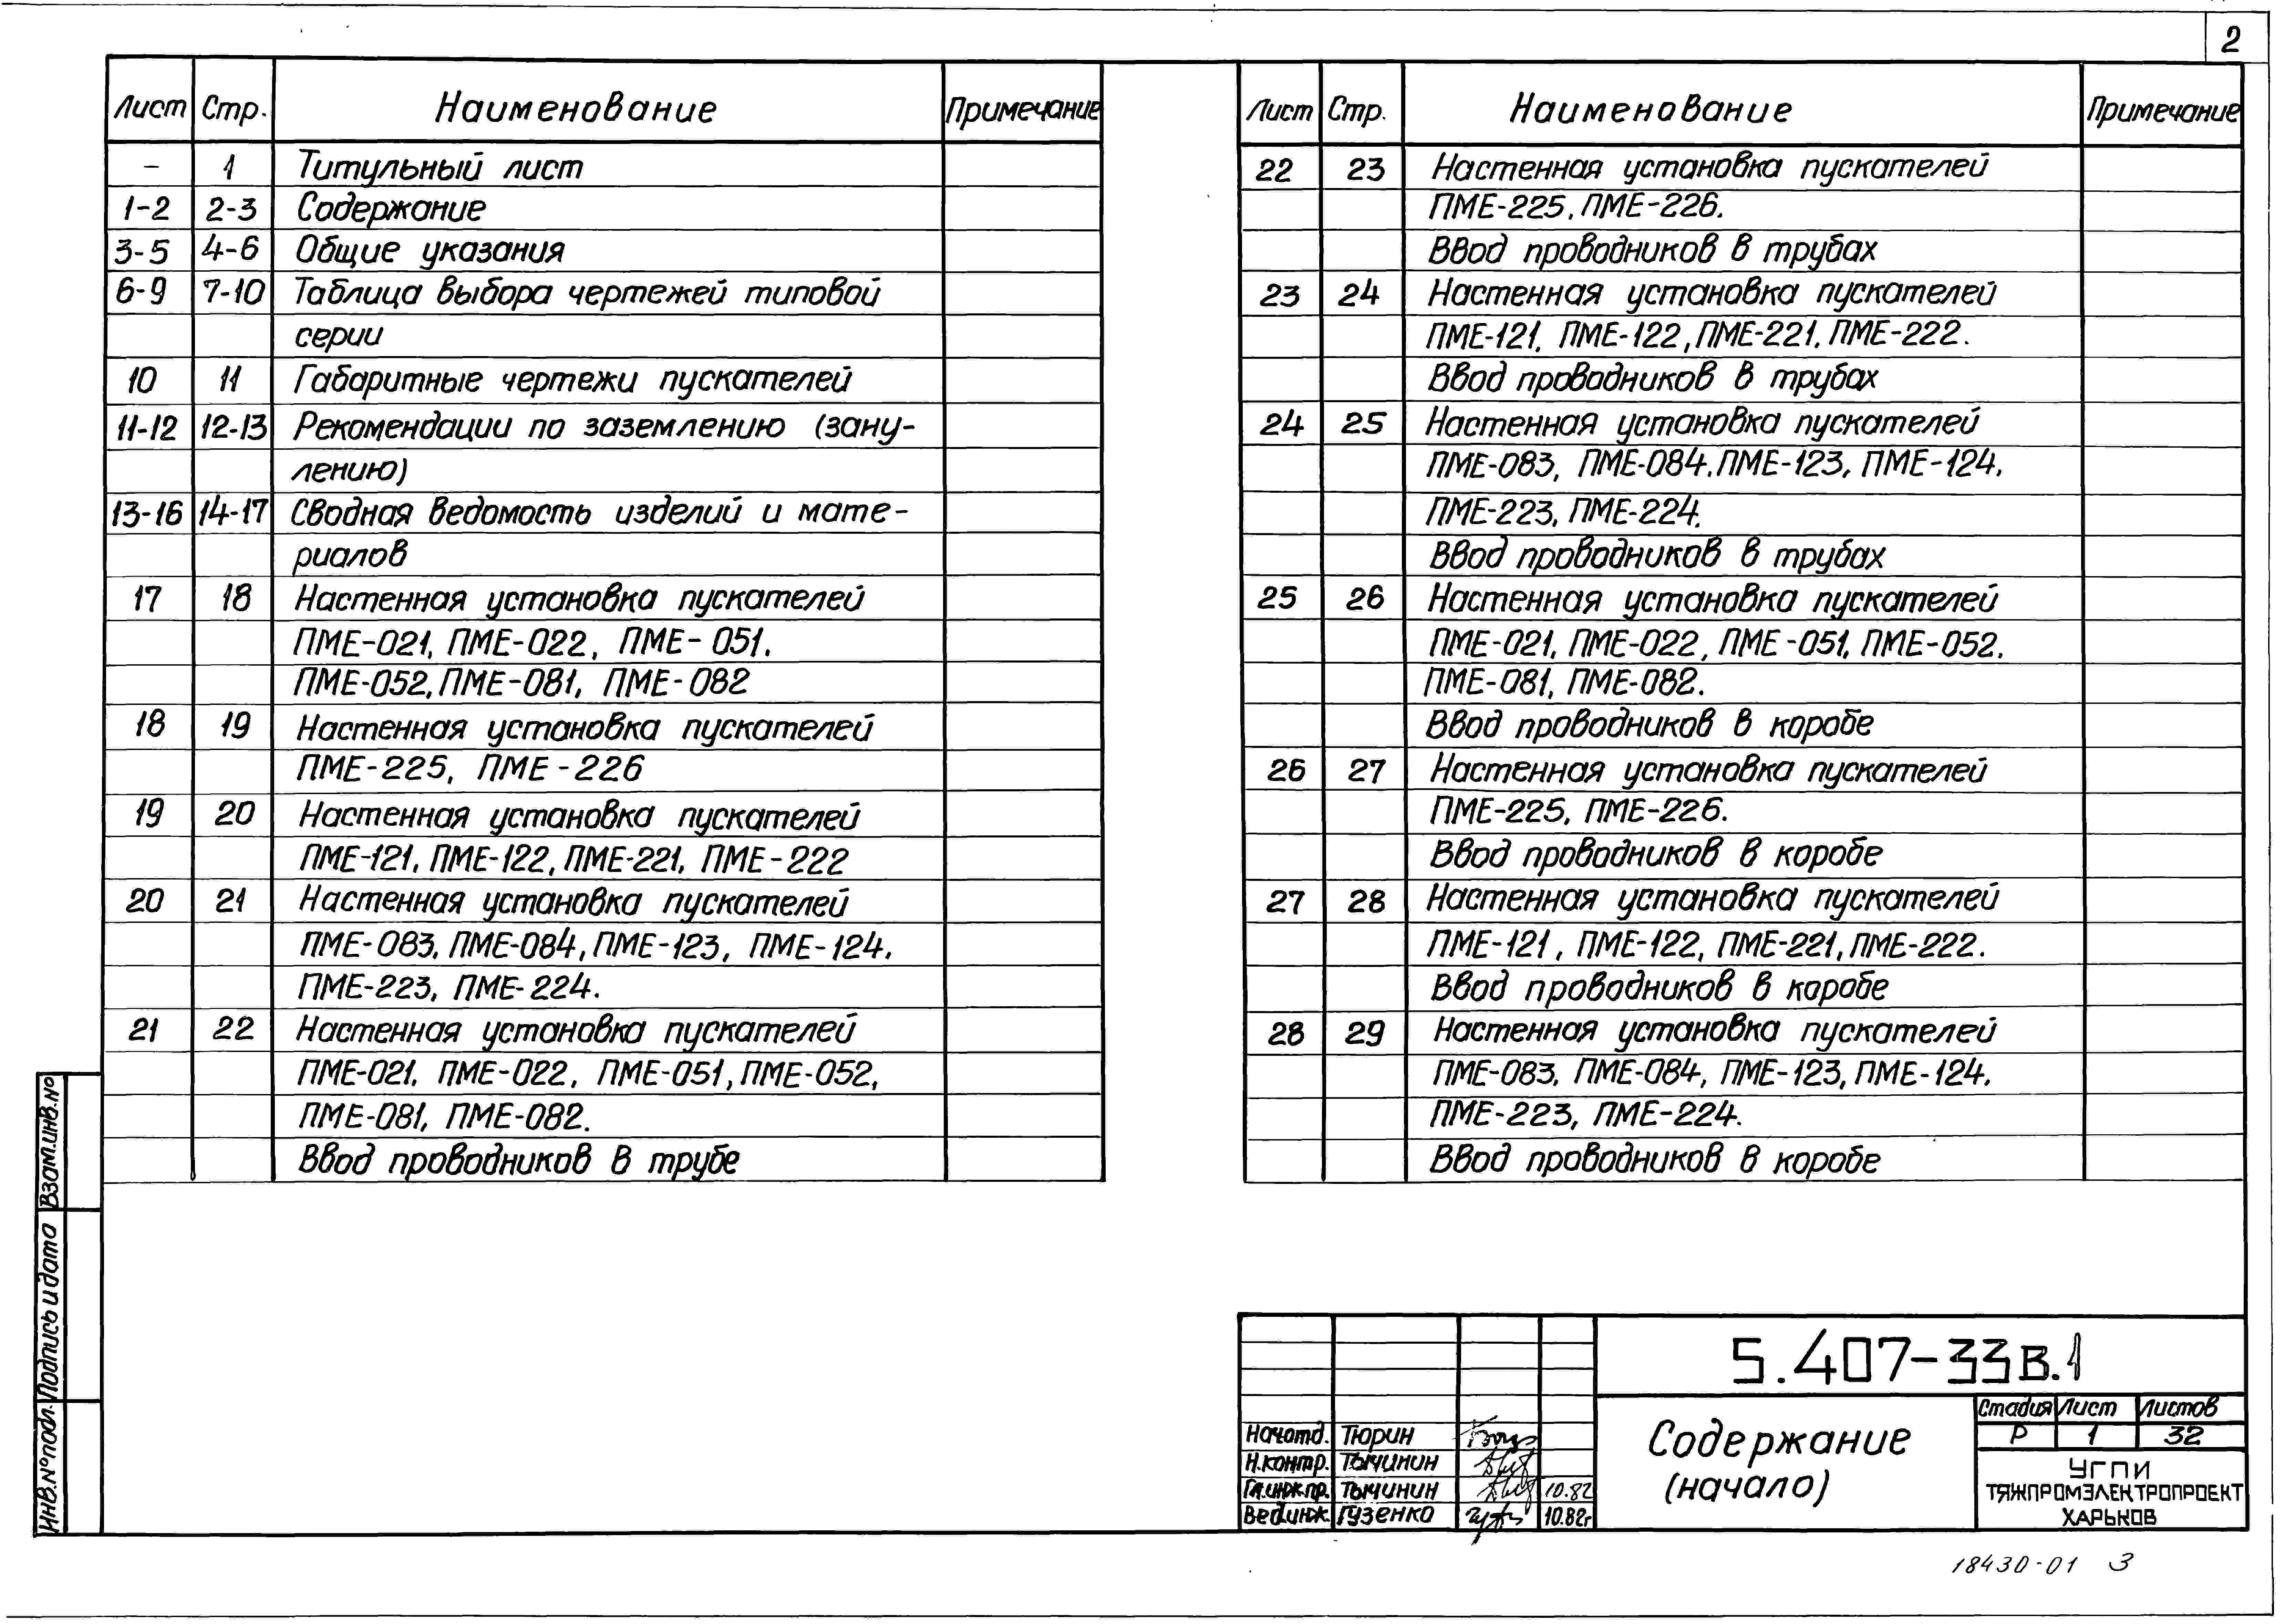 2
Лист Стр. Наименование Примечание
– 1 Титульный лист
1-2 2-3 Содержание
3-5 4-6 Общие указания
6-9 7-10 Таблица выбора чертежей типовой
серии
10 11 Габаритные чертежи пускателей
11-12 12-13 Рекомендации по заземлению (зану-
лению)
13-16 14-17 Сводная ведомость изделий и мате-
риалов
17 18 Настенная установка пускателей
ПМЕ-021, ПМЕ-022, ПМЕ-051.
ПМЕ-052, ПМЕ-081, ПМЕ-082
18 19 Настенная установка пускателей
ПМЕ-225, ПМЕ-226
19 20 Настенная установка пускателей
ПМЕ-121, ПМЕ-122, ПМЕ-221, ПМЕ-222
20 21 Настенная установка пускателей
ПМЕ-083, ПМЕ-084, ПМЕ-123, ПМЕ-124,
ПМЕ-223, ПМЕ-224.
21 22 Настенная установка пускателей
ПМЕ-021, ПМЕ-022, ПМЕ-051, ПМЕ-052,
ПМЕ-081, ПМЕ-082.
Ввод проводников в трубе
Лист Стр. Наименование Примечание
22 23 Настенная установка пускателей
ПМЕ-225, ПМЕ-226.
Ввод проводников в трубах
23 24 Настенная установка пускателей
ПМЕ-121, ПМЕ-122, ПМЕ-221, ПМЕ-222.
Ввод проводников в трубах
24 25 Настенная установка пускателей
ПМЕ-083, ПМЕ-084, ПМЕ-123, ПМЕ-124,
ПМЕ-223, ПМЕ-224.
Ввод проводников в трубах
25 26 Настенная установка пускателей
ПМЕ-021, ПМЕ-022, ПМЕ-051, ПМЕ-052.
ПМЕ-081, ПМЕ-082.
Ввод проводников в коробе
26 27 Настенная установка пускателей
ПМЕ-225, ПМЕ-226.
Ввод проводников в коробе
27 28 Настенная установка пускателей
ПМЕ-121, ПМЕ-122, ПМЕ-221, ПМЕ-222.
Ввод проводников в коробе
28 29 Настенная установка пускателей
ПМЕ-083, ПМЕ-084, ПМЕ-123, ПМЕ-124,
ПМЕ-223, ПМЕ-224.
Ввод проводников в коробе
Взам.инв.№
Подпись и дата
Инв.№подл.
5.407-33в.1
Нач.отд. Тюрин
Н.контр. Тычинин
Гл.инж.пр. Тычинин 10.82
Вед.инж. Гузенко 10.82г
Содержание
(начало)
Стадия Лист Листов
Р 1 32
УГПИ
ТЯЖПРОМЭЛЕКТРОПРОЕКТ
ХАРЬКОВ
18430-01 3